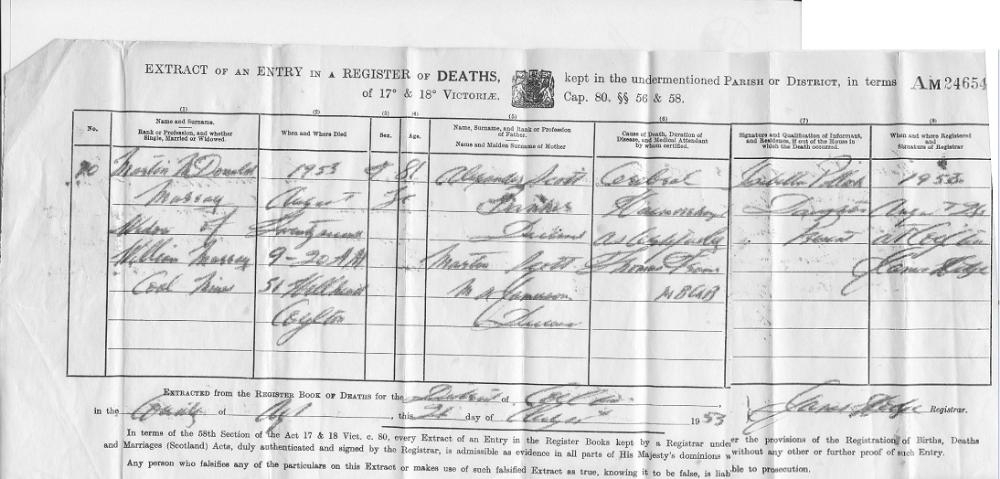 EXTRACT OF AN ENTRY IN A REGISTER OF DEATHS, kept in the undermentioned PARISH OR DISTRICT, in terms AM 24654
of 17° & 18° VICTORIÆ, Cap. 80, §§ 56 & 58.
(1) (2) (3) (4) (5) (6) (7) (8)
No.
Name and Surname.
Rank or Profession, and whether Single, Married or Widowed.
When and Where Died
Sex.
Age.
Name, Surname, and Rank or Profession of Father.
Name and Maiden Surname of Mother
Cause of Death, Duration of Disease, and Medical Attendant by whom certified.
Signature and Qualification of Informant, and Residence, if out of the House in which the Death occurred.
When and where Registered and Signature of Registrar
1953 F 81 Alexander Scott Cerebral Isabella 1953
Murray August
Widow of
William Murray 9-20 AM Scott Thomas
Coal Miner 51 Hillhead M.B Ch.B
Coylton
EXTRACTED from the REGISTER BOOK OF DEATHS for the District of Coylton
in the County of Ayr, this day of August 1953 Registrar.
In terms of the 58th Section of the Act 17 & 18 Vict. c. 80, every Extract of an Entry in the Register Books kept by a Registrar under the provisions of the Registration of Births, Deaths
and Marriages (Scotland) Acts, duly authenticated and signed by the Registrar, is admissible as evidence in all parts of His Majesty's dominions without any other or further proof of such Entry.
Any person who falsifies any of the particulars on this Extract or makes use of such falsified Extract as true, knowing it to be false, is liable to prosecution.